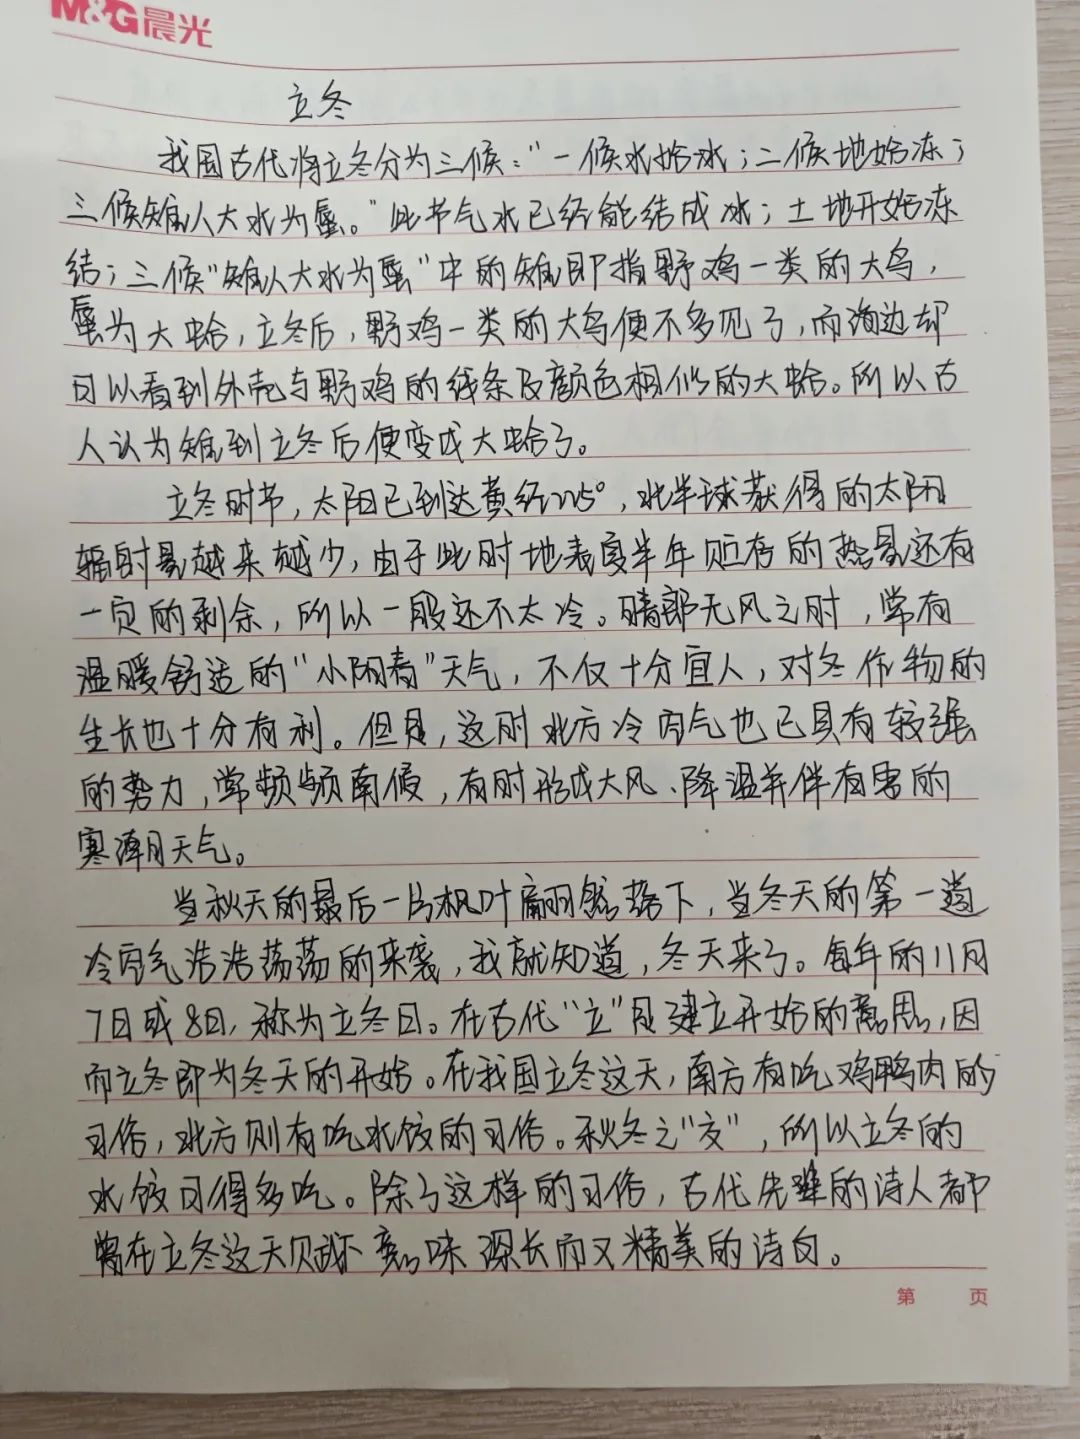 M&G晨光
立冬
我国古代将立冬分为三候:"一候水始冰;二候地始冻;
三候雉入大水为蜃。"此节气水已经能结成冰;土地开始冻
结;三候"雉入大水为蜃"中的雉即指野鸡一类的大鸟,
蜃为大蛤,立冬后,野鸡一类的大鸟便不多见了,而海边却
可以看到外壳与野鸡的线条及颜色相似的大蛤。所以古
人认为雉到立冬后便变成大蛤了。
立冬时节,太阳已到达黄经225°,北半球获得的太阳
辐射量越来越少,由于此时地表夏半年贮存的热量还有
一定的剩余,所以一般还不太冷。晴朗无风之时,常有
温暖舒适的"小阳春"天气,不仅十分宜人,对冬作物的
生长也十分有利。但是,这时北方冷空气也已具有较强
的势力,常频频南侵,有时形成大风、降温并伴有雪的
寒潮天气。
当秋天的最后一片枫叶翩翩落下,当冬天的第一道
冷空气浩浩荡荡的来袭,我就知道,冬天来了。每年的11月
7日或8日,称为立冬日。在古代"立"是建立开始的意思,因
而立冬即为冬天的开始。在我国立冬这天,南方有吃鸡鸭肉的
习俗,北方则有吃水饺的习俗。秋冬之"交",所以立冬的
水饺可得多吃。除了这样的习俗,古代先贤的诗人都
曾在立冬这天赋下意味深长而又精美的诗句。
第 页